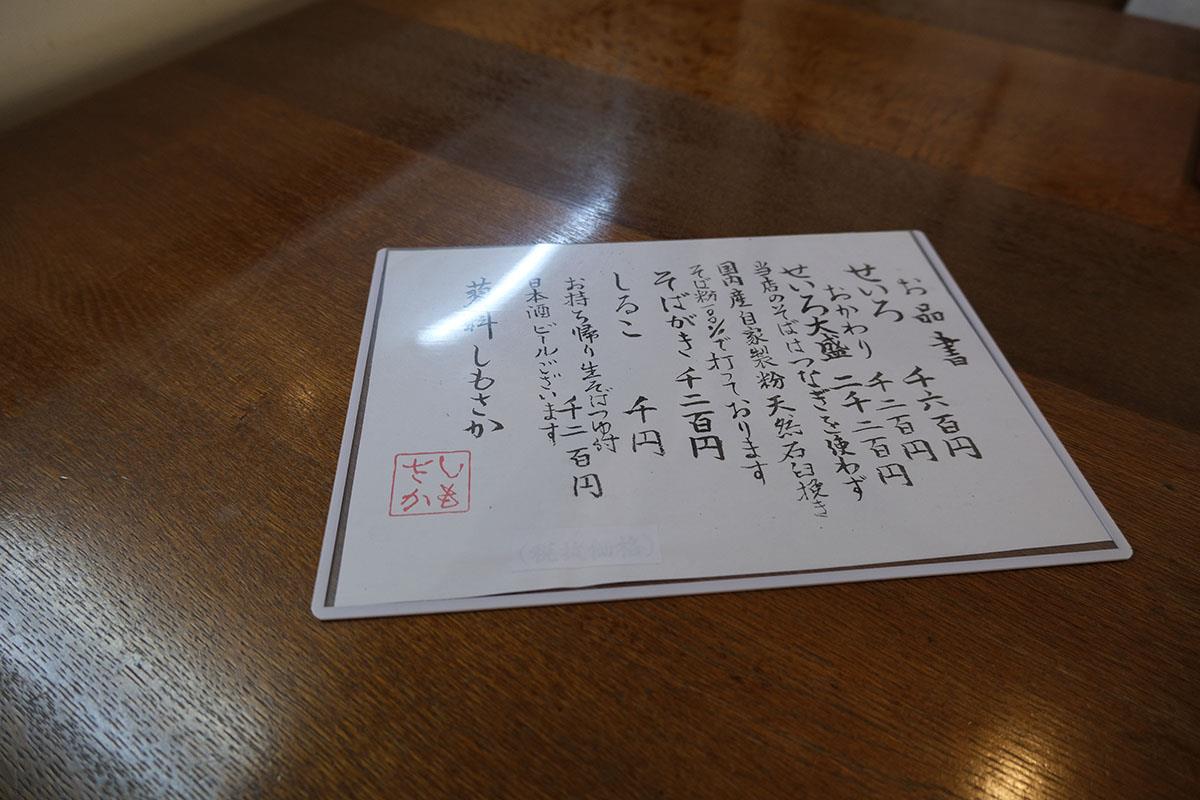 お品書
せいろ 千六百円
おかわり 千二百円
せいろ大盛 二千二百円
当店のそばはつなぎを使わず
国内産自家製粉天然石臼挽き
そば粉100%で打っております
そばがき 千二百円
しるこ 千円
お持ち帰り生そばつゆ付
千二百円
日本酒ビールございます
蓼科しもさか
しも
さか
(税抜価格)